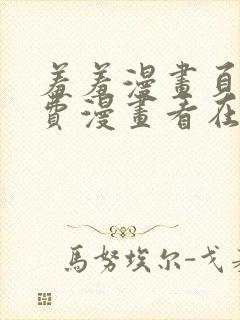 羞羞漫畫頁
費漫畫看在
馬努埃尔-戈